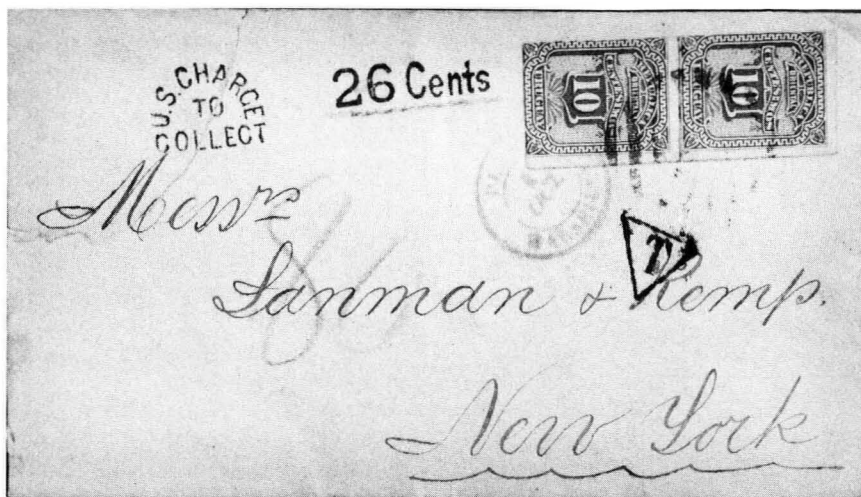 U.S. CHARGE
TO
COLLECT
26 Cents
10
10
T
Messrs
Lanman & Kemp.
New York